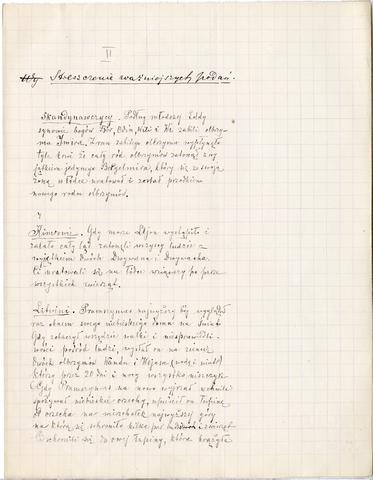 II
Streszczenie ważniejszych podań.
Skandynawczycy. Podług młodszej Eddy
synowie bogów Bör, Odin, Wili i We zabili olbrzy-
ma Ymira. Z rany zabitego olbrzyma wypłynęło
tyle krwi że cały ród olbrzymów zatonął z wy-
jątkiem jednego Bergelmira, który się ze swoją
żoną w łódce uratował i został przodkiem
nowego rodu olbrzymów.
Kimrowie. Gdy morze Llion wystąpiło i
zalało cały ląd zatonęli wszyscy ludzie z
wyjątkiem dwóch Drywana i Drywacha.
Ci uratowali się na łodzi wziąwszy po parze
wszystkich zwierząt.
Litwini. Pramżymas najwyższy bóg wyglądał
raz oknem swego niebieskiego domu na świat.
Gdy zobaczył wszędzie walki i niesprawiedli-
wość pośród ludzi, wysłał on na ziemię
dwóch olbrzymów Wandu i Wejasa (woda i wiatr)
którzy przez 20 dni i nocy wszystko niszczyli.
Gdy Pramżymas na nowo wyjrzał właśnie
spożywał niebieskie orzechy, upuścił on łupinę
z orzecha na wierzchołek najwyższej góry
na którą się schroniło kilka par ludzkich i zwierząt
schronili się do owej łupiny, która krążyła